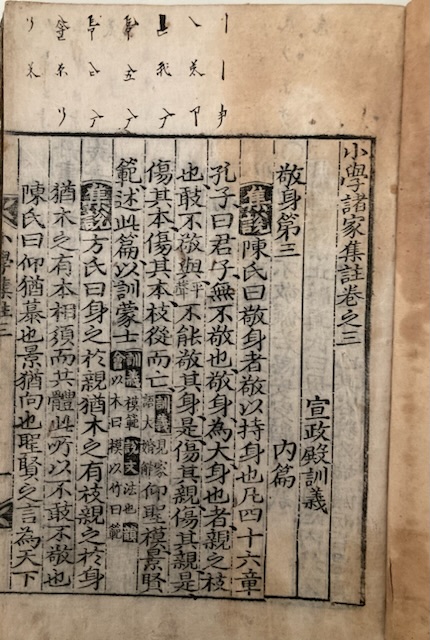 小學諸家集註卷之三
宣政殿訓義
敬身第三 內篇
集說 陳氏曰敬身者敬以持身也凡四十六章
孔子曰君子無不敬也敬身為大身也者親之枝
也敢不敬與平聲不能敬其身是傷其親傷其親是
傷其本傷其本枝從而亡訓義見家語大婚解仰聖模景賢
範述此篇以訓蒙士訓義模範說文法也韻會以木曰模以竹曰範
集說 方氏曰身之於親猶木之有枝親之於身
猶木之有本相須而共體此所以不敢不敬也
陳氏曰仰猶慕也景猶向也聖賢之言為天下
小學集註三